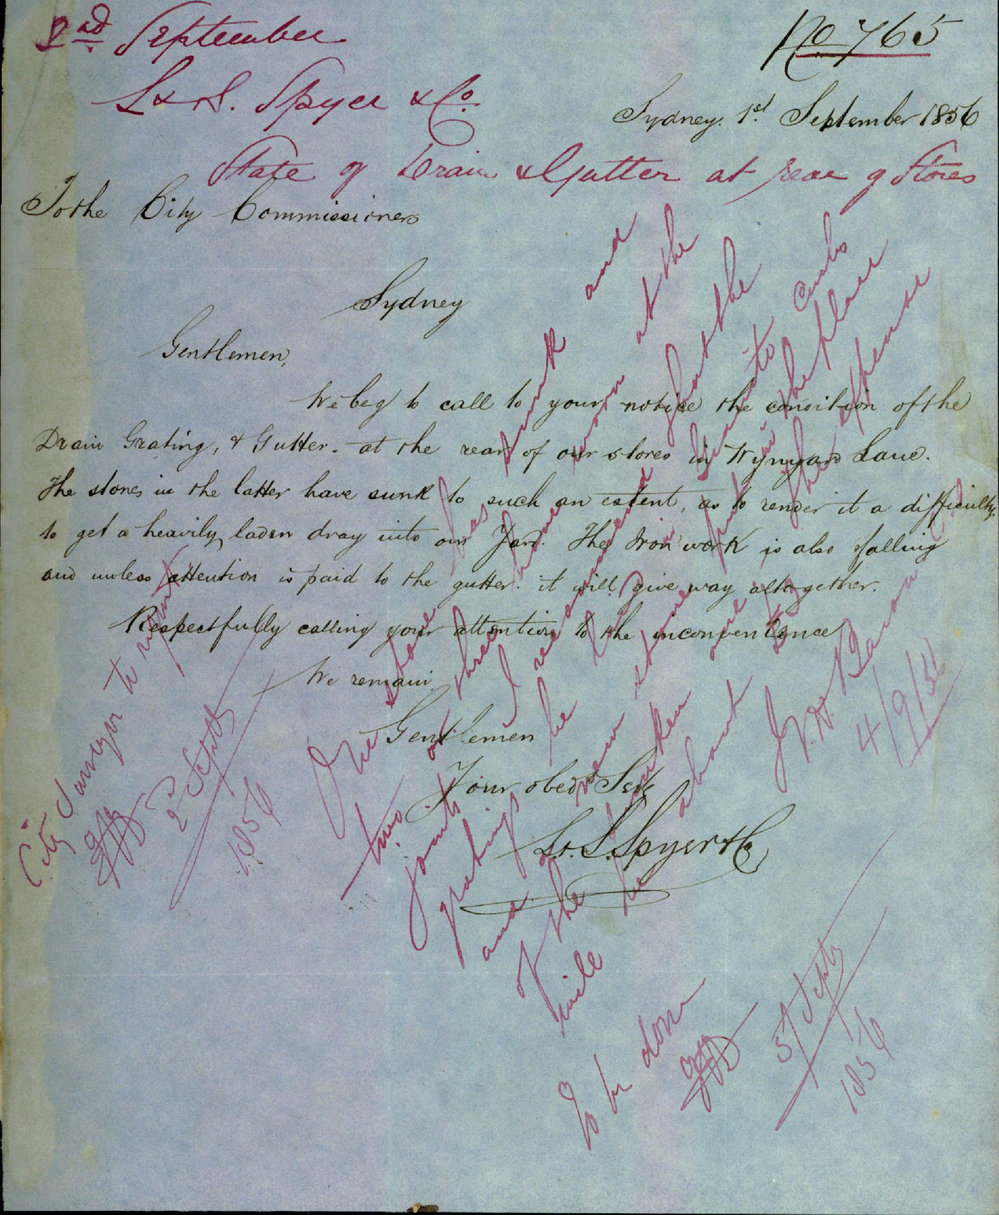 2nd September
No 765
L & S. Spyer & Co.
Sydney. 1st September 1856
State of Drain & Gutter at rear of Stores
To the City Commissioners
Sydney
Gentlemen,
We beg to call to your notice the condition of the
Drain Grating, & Gutter. at the rear of our stores in Wynyard Lane.
The stones in the latter have sunk to such an extent, as to render it a difficulty
to get a heavily laden dray into our Yard. The Iron work is also falling
and unless attention is paid to the gutter. it will give way altogether.
Respectfully calling your attention to the inconvenience
We remain
Gentlemen
Your obedt Servts
L. S. Spyer & Co
City Surveyor to report
2d Septr
1856
One stone has sunk and
two or three more worn at the
joints I recommend that the
gratings be turned into curbs
and a new stone put in the place
of the broken one the expense
will be about
4/9/56
To be done
5/Septr
1856